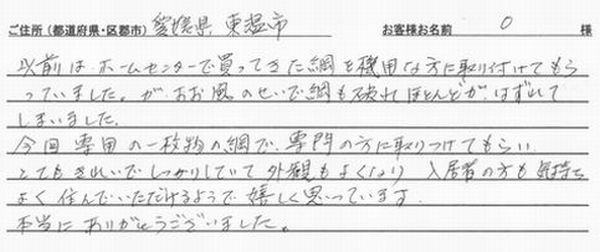 ご住所（都道府県・区郡市） 愛媛県 東温市 お客様お名前 O 様
以前は ホームセンターで買ってきた綱を機用な方に取り付けてもら
っていました。が、おお風のせいで綱も破れほとんどが、はずれて
しまいました。
今回 専用の一枚物の綱で、専門の方に取りつけてもらい
とてもきれいでしっかりしていて外観もよくなり 入居者の方も気持ち
よく住んでいただけるようで嬉しく思っています。
本当にありがとうございました。